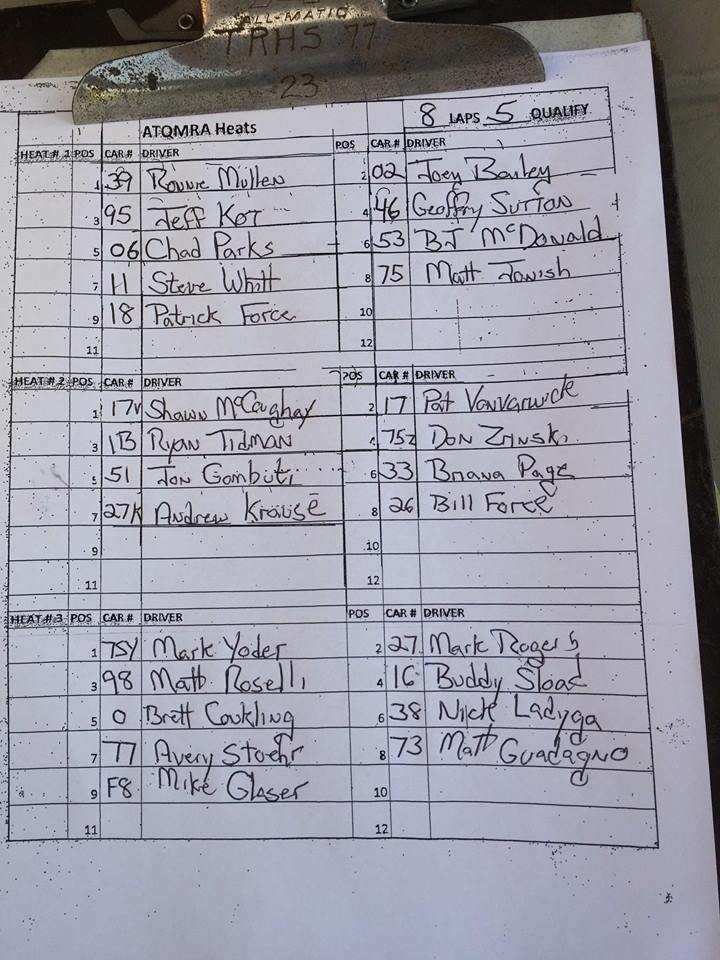 ALL-MATIC
TRHS 77
23
ATQMRA Heats 8 LAPS 5 QUALIFY
HEAT # 1 POS CAR # DRIVER POS CAR # DRIVER
1 39 Ronnie Mullen 2 02 Joey Bailey
3 95 Jeff Kot 4 46 Geoffry Sutton
5 06 Chad Parks 6 53 BJ McDonald
7 11 Steve Whitt 8 75 Matt Janish
9 18 Patrick Force 10
11 12
HEAT # 2 POS CAR # DRIVER POS CAR # DRIVER
1 17v Shawn McCaughay 2 17 Pat VanVarwick
3 1B Ryan Tidman 4 75z Don Zrinski
5 51 Jon Gambuti 6 33 Briana Page
7 27K Andrew Krause 8 26 Bill Force
9 10
11 12
HEAT # 3 POS CAR # DRIVER POS CAR # DRIVER
1 75Y Mark Yoder 2 27 Mark Rogers
3 98 Matt Roselli 4 16 Buddy Sload
5 0 Brett Conkling 6 38 Nick Ladyga
7 77 Avery Stoehr 8 73 Matt Guadagno
9 F8 Mike Glaser 10
11 12